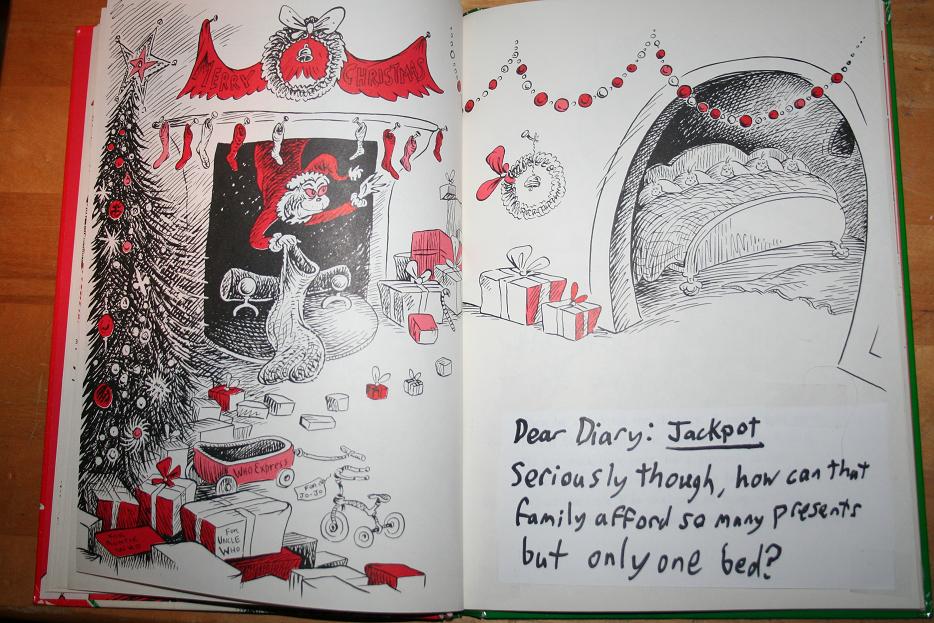 MERRY CHRISTMAS
WHO EXPRESS
FOR
JO-JO
FOR
UNCLE
WHO
FOR
AUNTIE
WHO
Dear Diary: Jackpot
Seriously though, how can that
family afford so many presents
but only one bed?